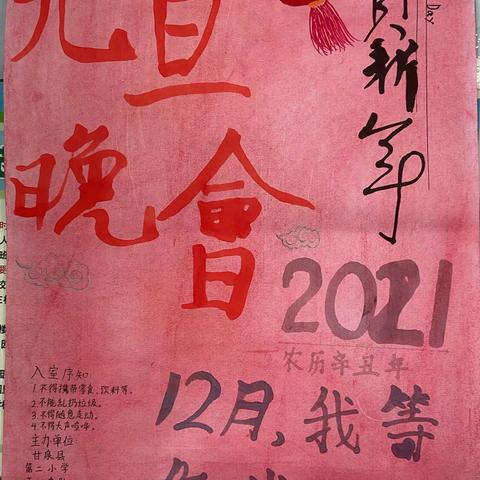 元旦
晚會
贺新年
Day
2021
农历辛丑年
12月,我等
入室序知
1.不得携带零食、饮料等。
2.不能乱扔垃圾。
3.不得随意走动。
4.不得大声喧哗。
主办单位:
甘泉县
第二小学